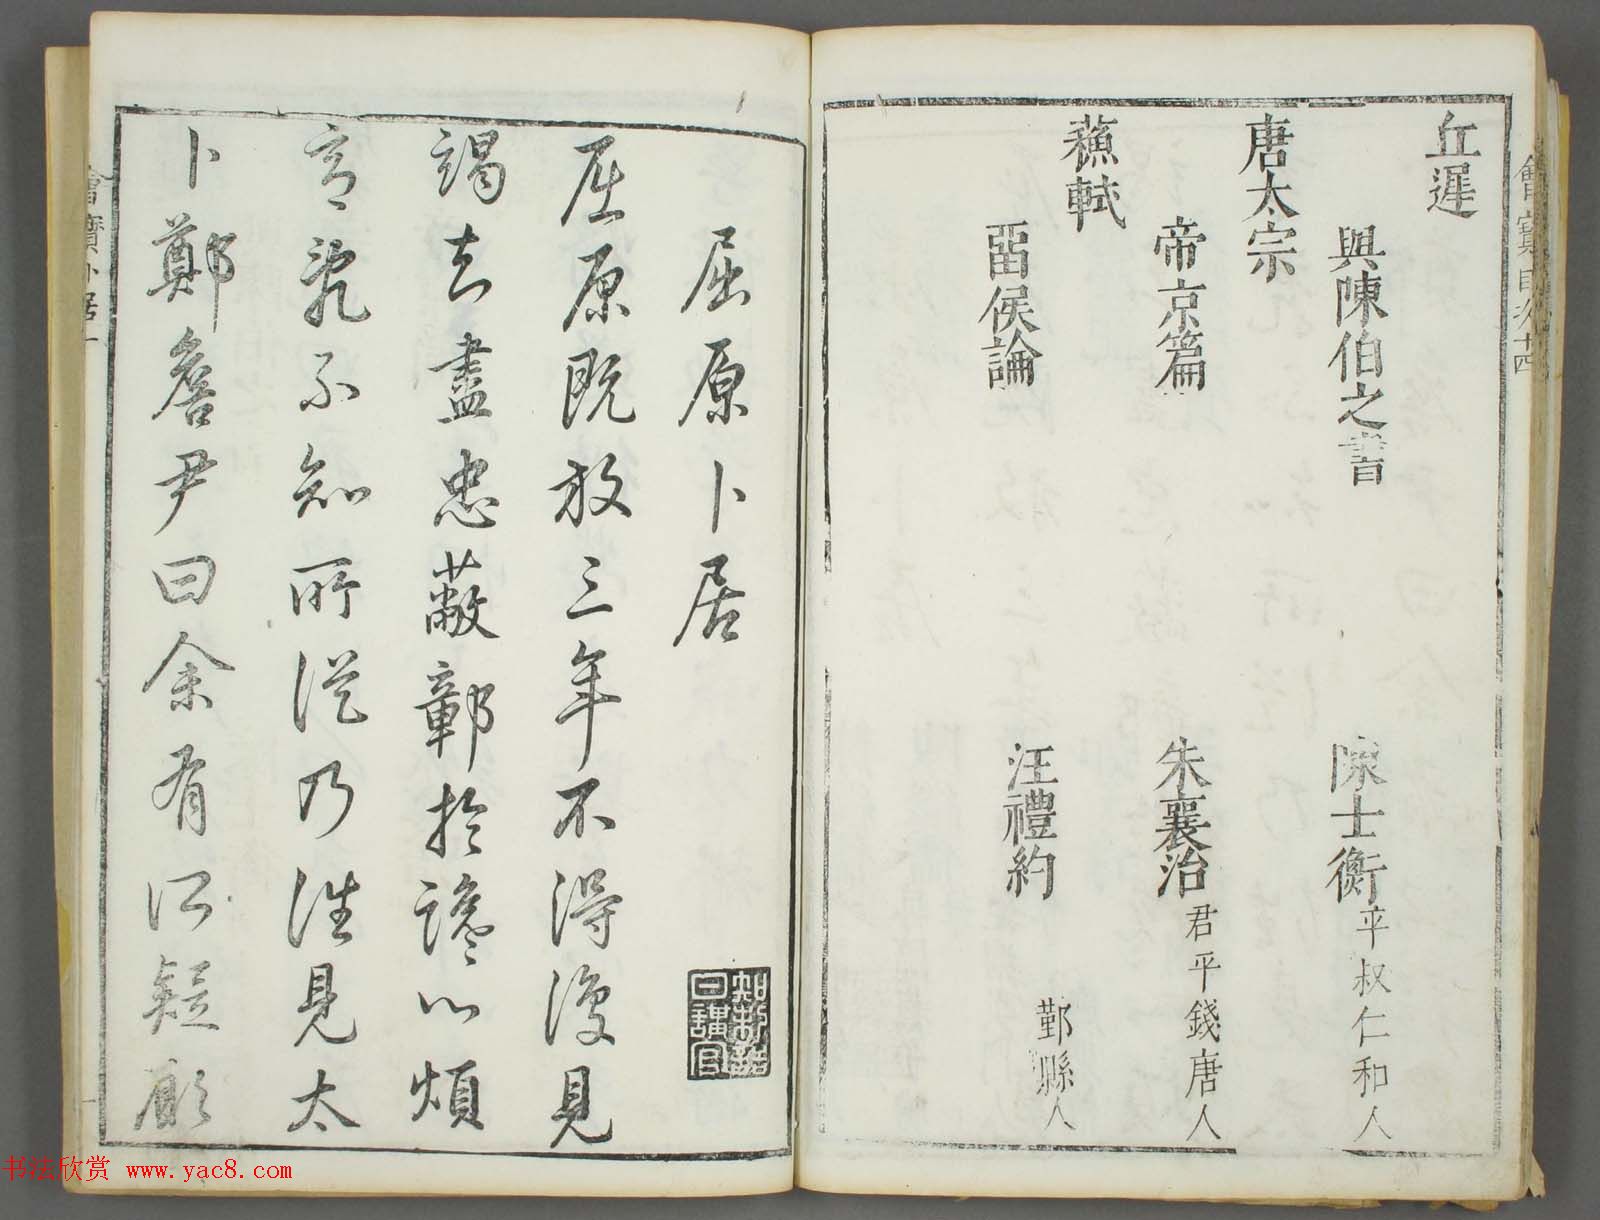 丘遲
與陳伯之書
陳士衡
平叔仁和人
唐太宗
帝京篇
朱襄治
君平錢唐人
蘇軾
畱侯論
汪禮約
鄞縣人
屈原卜居
知制誥日講官
屈原既放三年不得復見
竭知盡忠蔽鄣於讒心煩
意亂不知所從乃往見太
卜鄭詹尹曰余有所疑願
书法欣赏 www.yac8.com